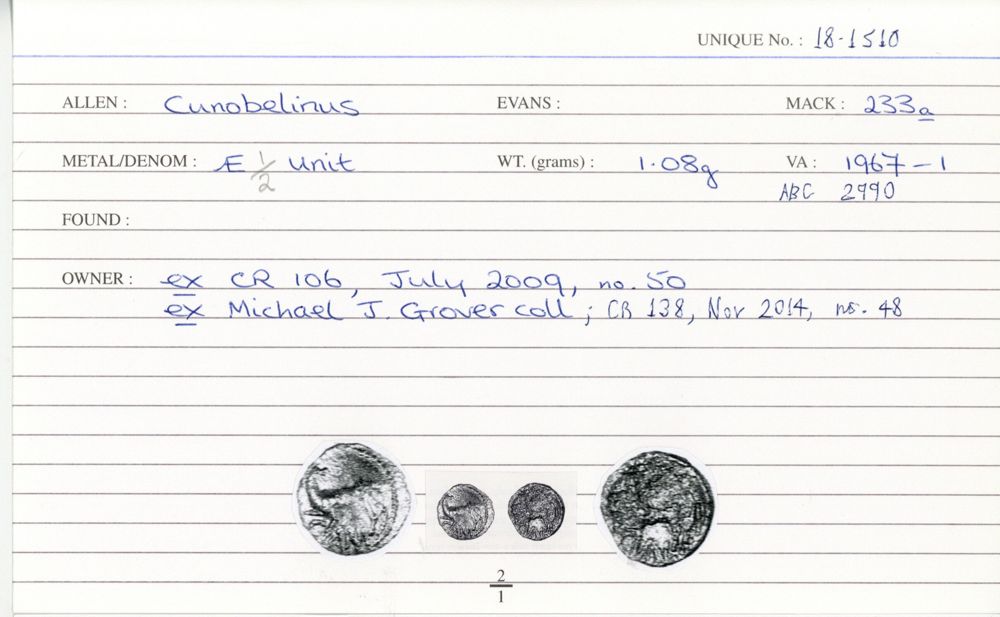 UNIQUE No. : 18-1510
ALLEN : Cunobelinus EVANS : MACK : 233a
METAL/DENOM : Æ 1/2 Unit WT. (grams) : 1.08g VA : 1967-1
ABC 2990
FOUND :
OWNER : ex CR 106, July 2009, no. 50
ex Michael J. Grover coll ; CR 138, Nov 2014, no. 48
2
1